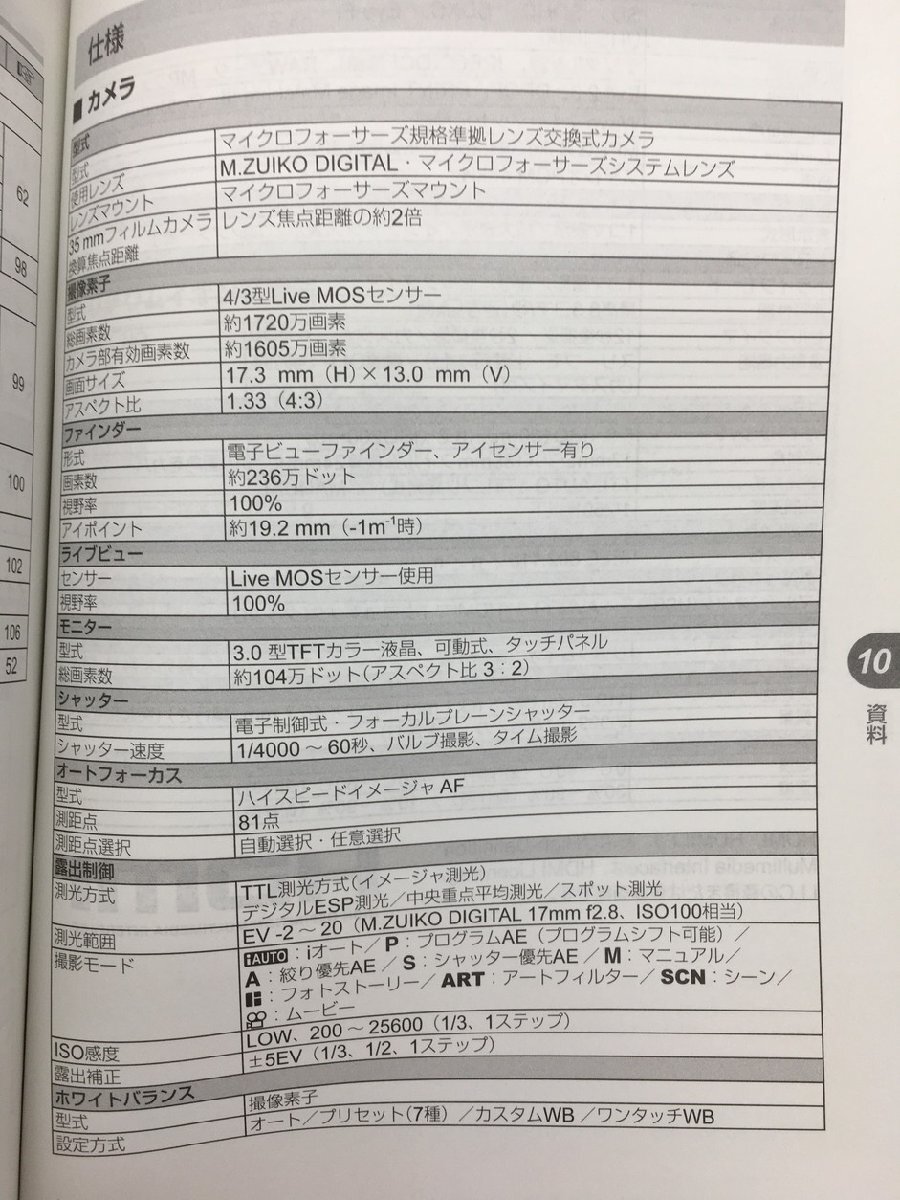 仕様
■ カメラ
型式
型式 マイクロフォーサーズ規格準拠レンズ交換式カメラ
使用レンズ M.ZUIKO DIGITAL・マイクロフォーサーズシステムレンズ
レンズマウント マイクロフォーサーズマウント
35 mmフィルムカメラ レンズ焦点距離の約2倍
換算焦点距離
撮像素子
型式 4/3型Live MOSセンサー
総画素数 約1720万画素
カメラ部有効画素数 約1605万画素
画面サイズ 17.3 mm（H）× 13.0 mm（V）
アスペクト比 1.33（4:3）
ファインダー
形式 電子ビューファインダー、アイセンサー有り
画素数 約236万ドット
視野率 100%
アイポイント 約19.2 mm（-1m⁻¹時）
ライブビュー
センサー Live MOSセンサー使用
視野率 100%
モニター
型式 3.0 型TFTカラー液晶、可動式、タッチパネル
総画素数 約104万ドット（アスペクト比 3：2）
シャッター
型式 電子制御式・フォーカルプレーンシャッター
シャッター速度 1/4000 ～ 60秒、バルブ撮影、タイム撮影
オートフォーカス
型式 ハイスピードイメージャ AF
測距点 81点
測距点選択 自動選択・任意選択
露出制御
測光方式 TTL測光方式（イメージャ測光）
デジタルESP測光／中央重点平均測光／スポット測光
測光範囲 EV -2 ～ 20（M.ZUIKO DIGITAL 17mm f2.8、ISO100相当）
撮影モード iAUTO：iオート／P：プログラムAE（プログラムシフト可能）／
A：絞り優先AE／S：シャッター優先AE／M：マニュアル／
：フォトストーリー／ART：アートフィルター／SCN：シーン／
：ムービー
ISO感度 LOW、200 ～ 25600（1/3、1ステップ）
露出補正 ±5EV（1/3、1/2、1ステップ）
ホワイトバランス
型式 撮像素子
設定方式 オート／プリセット（7種）／カスタムWB／ワンタッチWB
62
98
99
100
102
106
52
10
資料